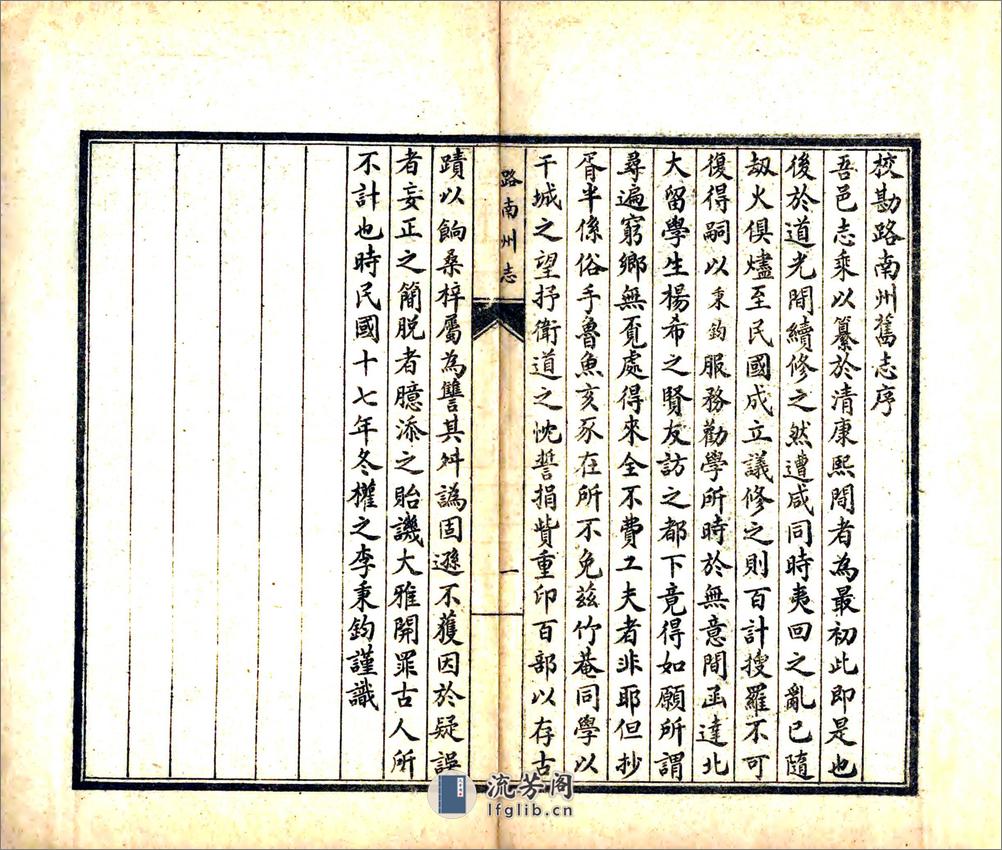 校勘路南州舊志序
吾邑志乘以纂於清康熙間者為最初此即是也
後於道光間續修之然遭咸同時夷回之亂已隨
劫火俱燼至民國成立議修之則百計搜羅不可
復得嗣以秉鈞服務勸學所時於無意間函達北
大留學生楊希之賢友訪之都下竟得如願所謂
尋遍窮鄉無覔處得來全不費工夫者非耶但抄
胥半係俗手魯魚亥豕在所不免茲竹菴同學以
干城之望抒衛道之忱誓捐貲重印百部以存古
路南州志
一
蹟以餉桑梓屬為讐其舛譌固遜不獲因於疑誤
者妄正之簡脱者臆添之貽譏大雅開罪古人所
不計也時民國十七年冬權之李秉鈞謹識
流芳阁
lfglib.cn